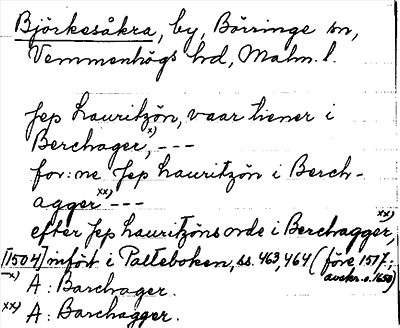 Björkesåkra, by, Börringe sn,
Vemmenhögs hd, Malm. l.
Jep Lauritzön, vaar tiener i
Berchager, x) ---
for:ne Jep Lauritzön i Berch-
agger xx) ---
efter Jep Lauritzöns orde i Berchagger, xx)
[1504] infört i Palteboken, ss. 463, 464 (före 1517;
avskr. o. 1650)
x) A: Barchager.
xx) A: Barchagger.